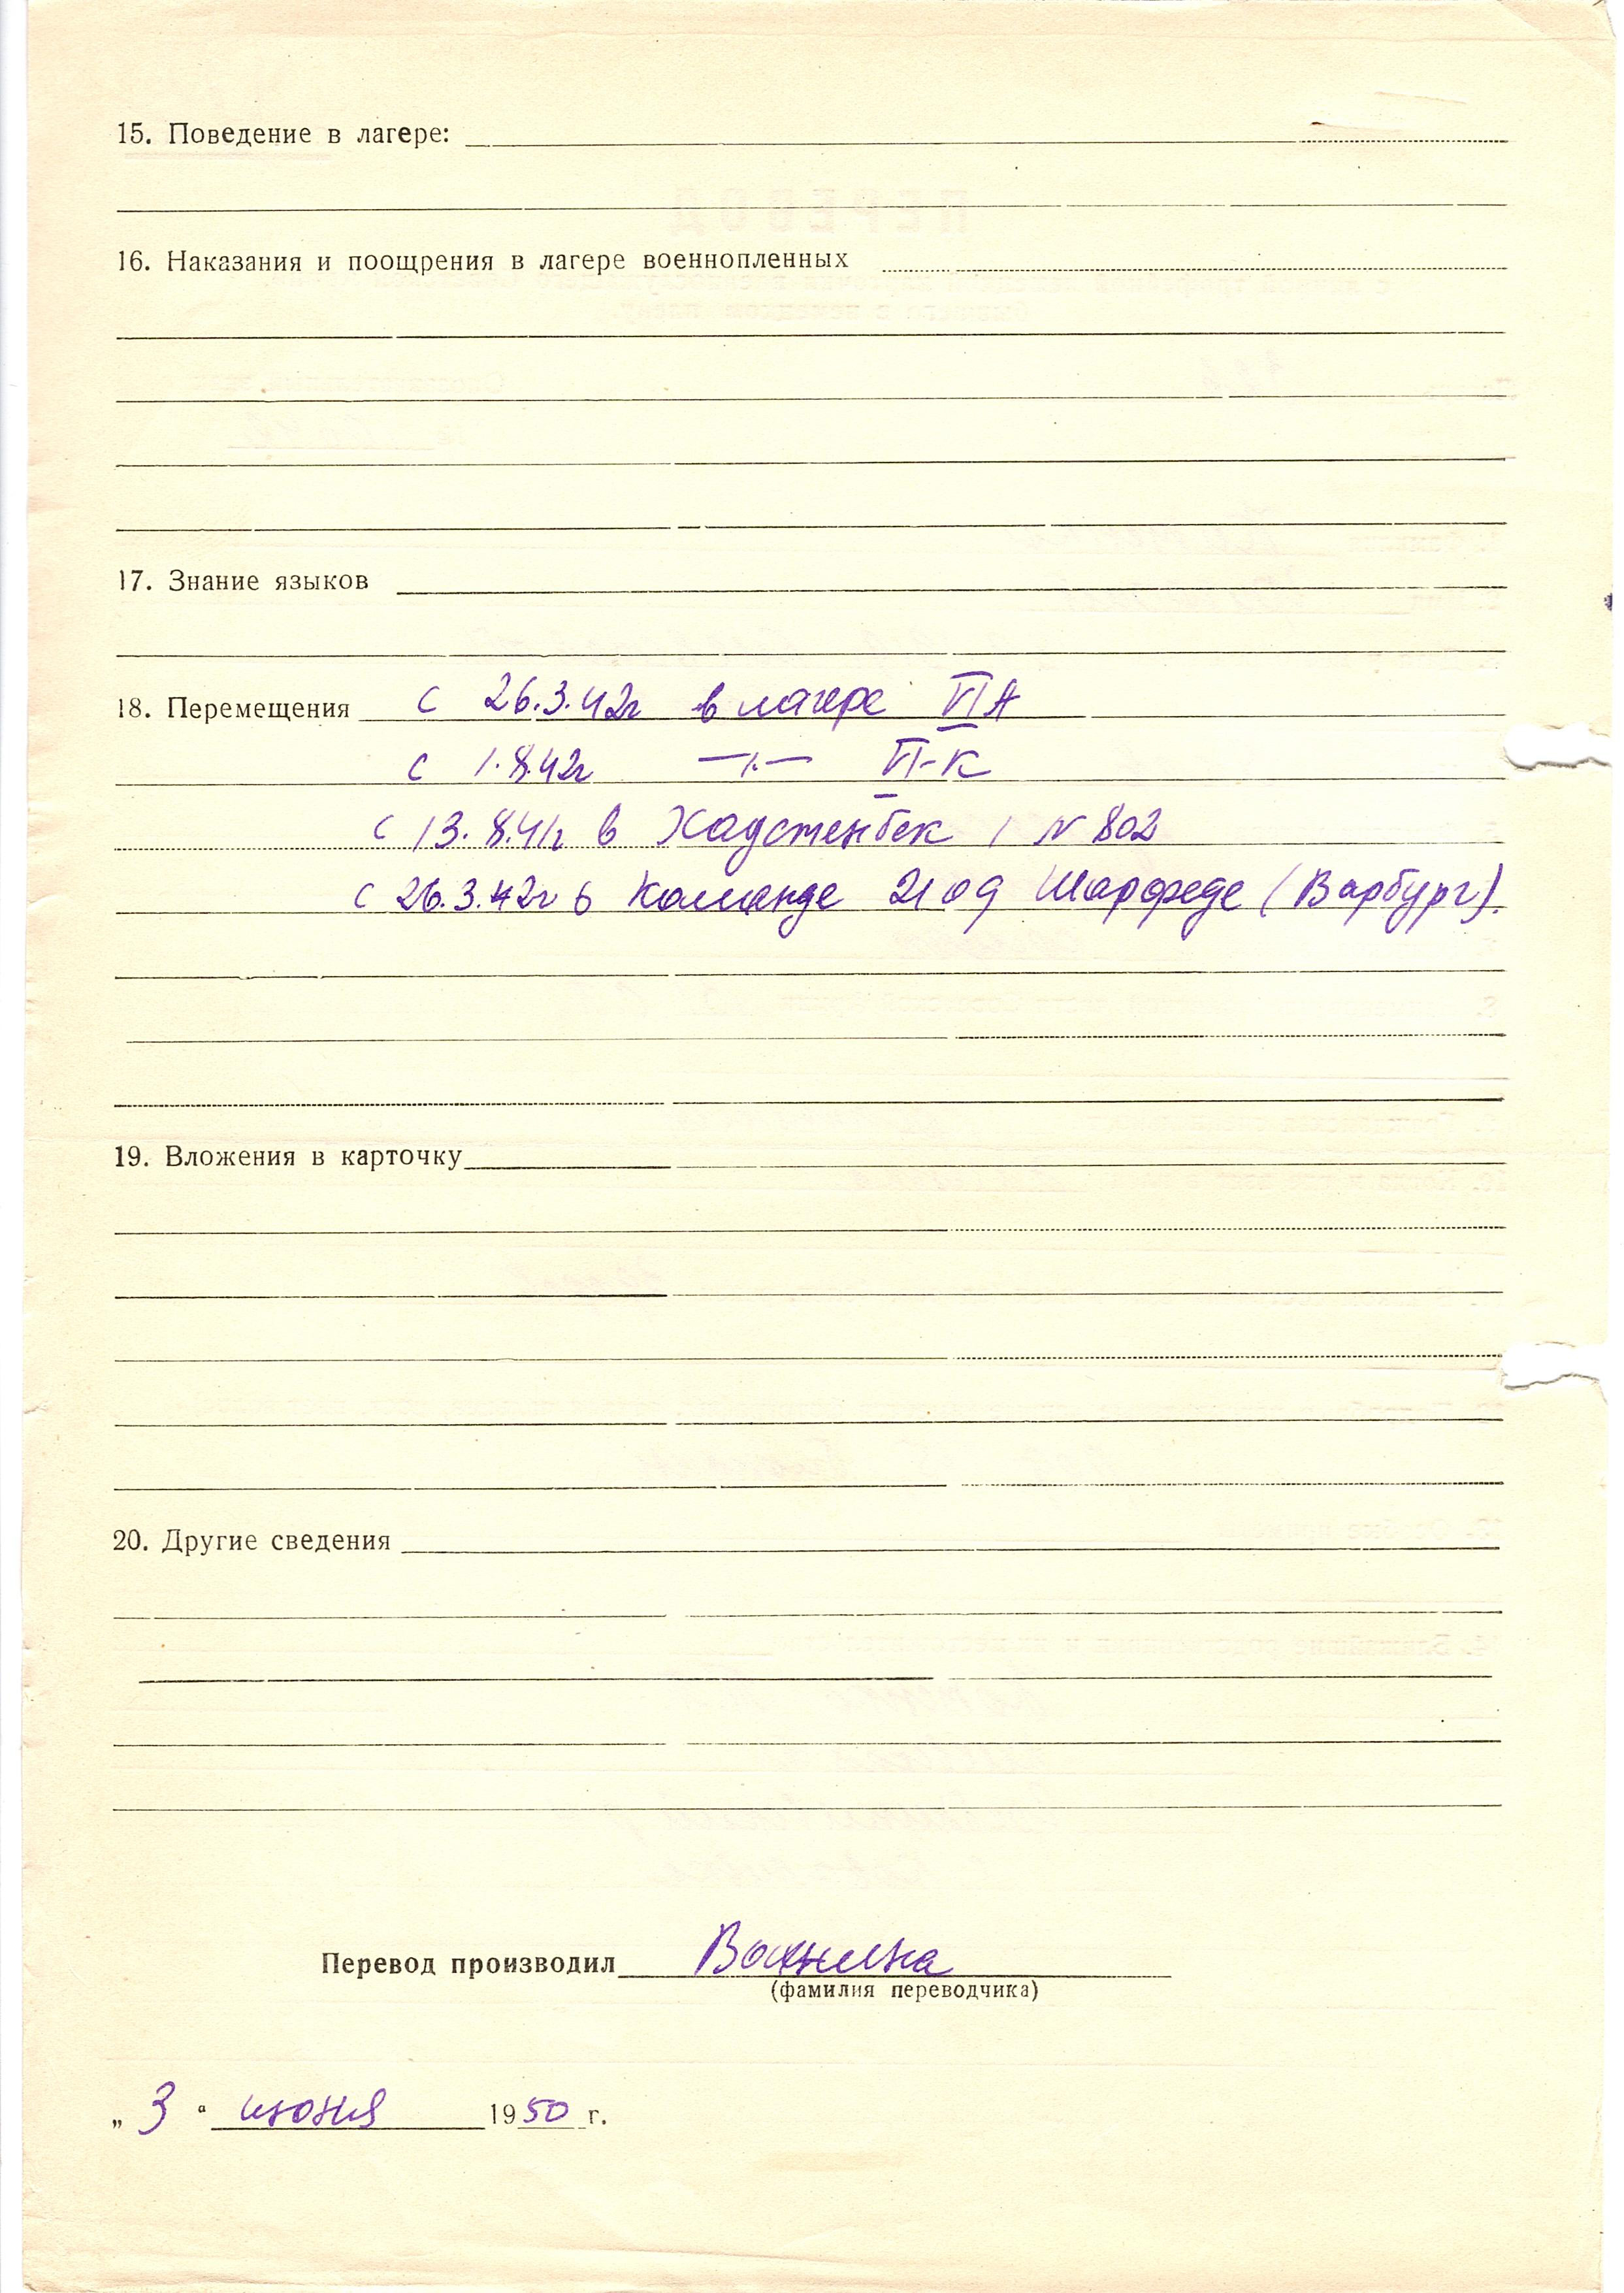 15. Поведение в лагере:
16. Наказания и поощрения в лагере военнопленных
17. Знание языков
18. Перемещения с 26.3.42г в лагере VI А
с 1.8.42г —〃— VI-К
с 13.8.41г в Хаустенбек / N 802
с 26.3.42г в команде 2109 Шарфеде (Варбург).
19. Вложения в карточку
20. Другие сведения
Перевод производил
(фамилия переводчика)
„ 3 “ июня 1950 г.